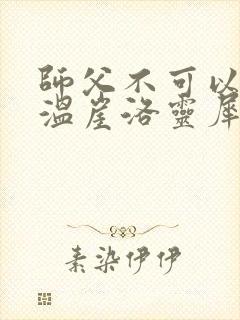 師父不可以
溫崖洛靈犀
素染伊伊